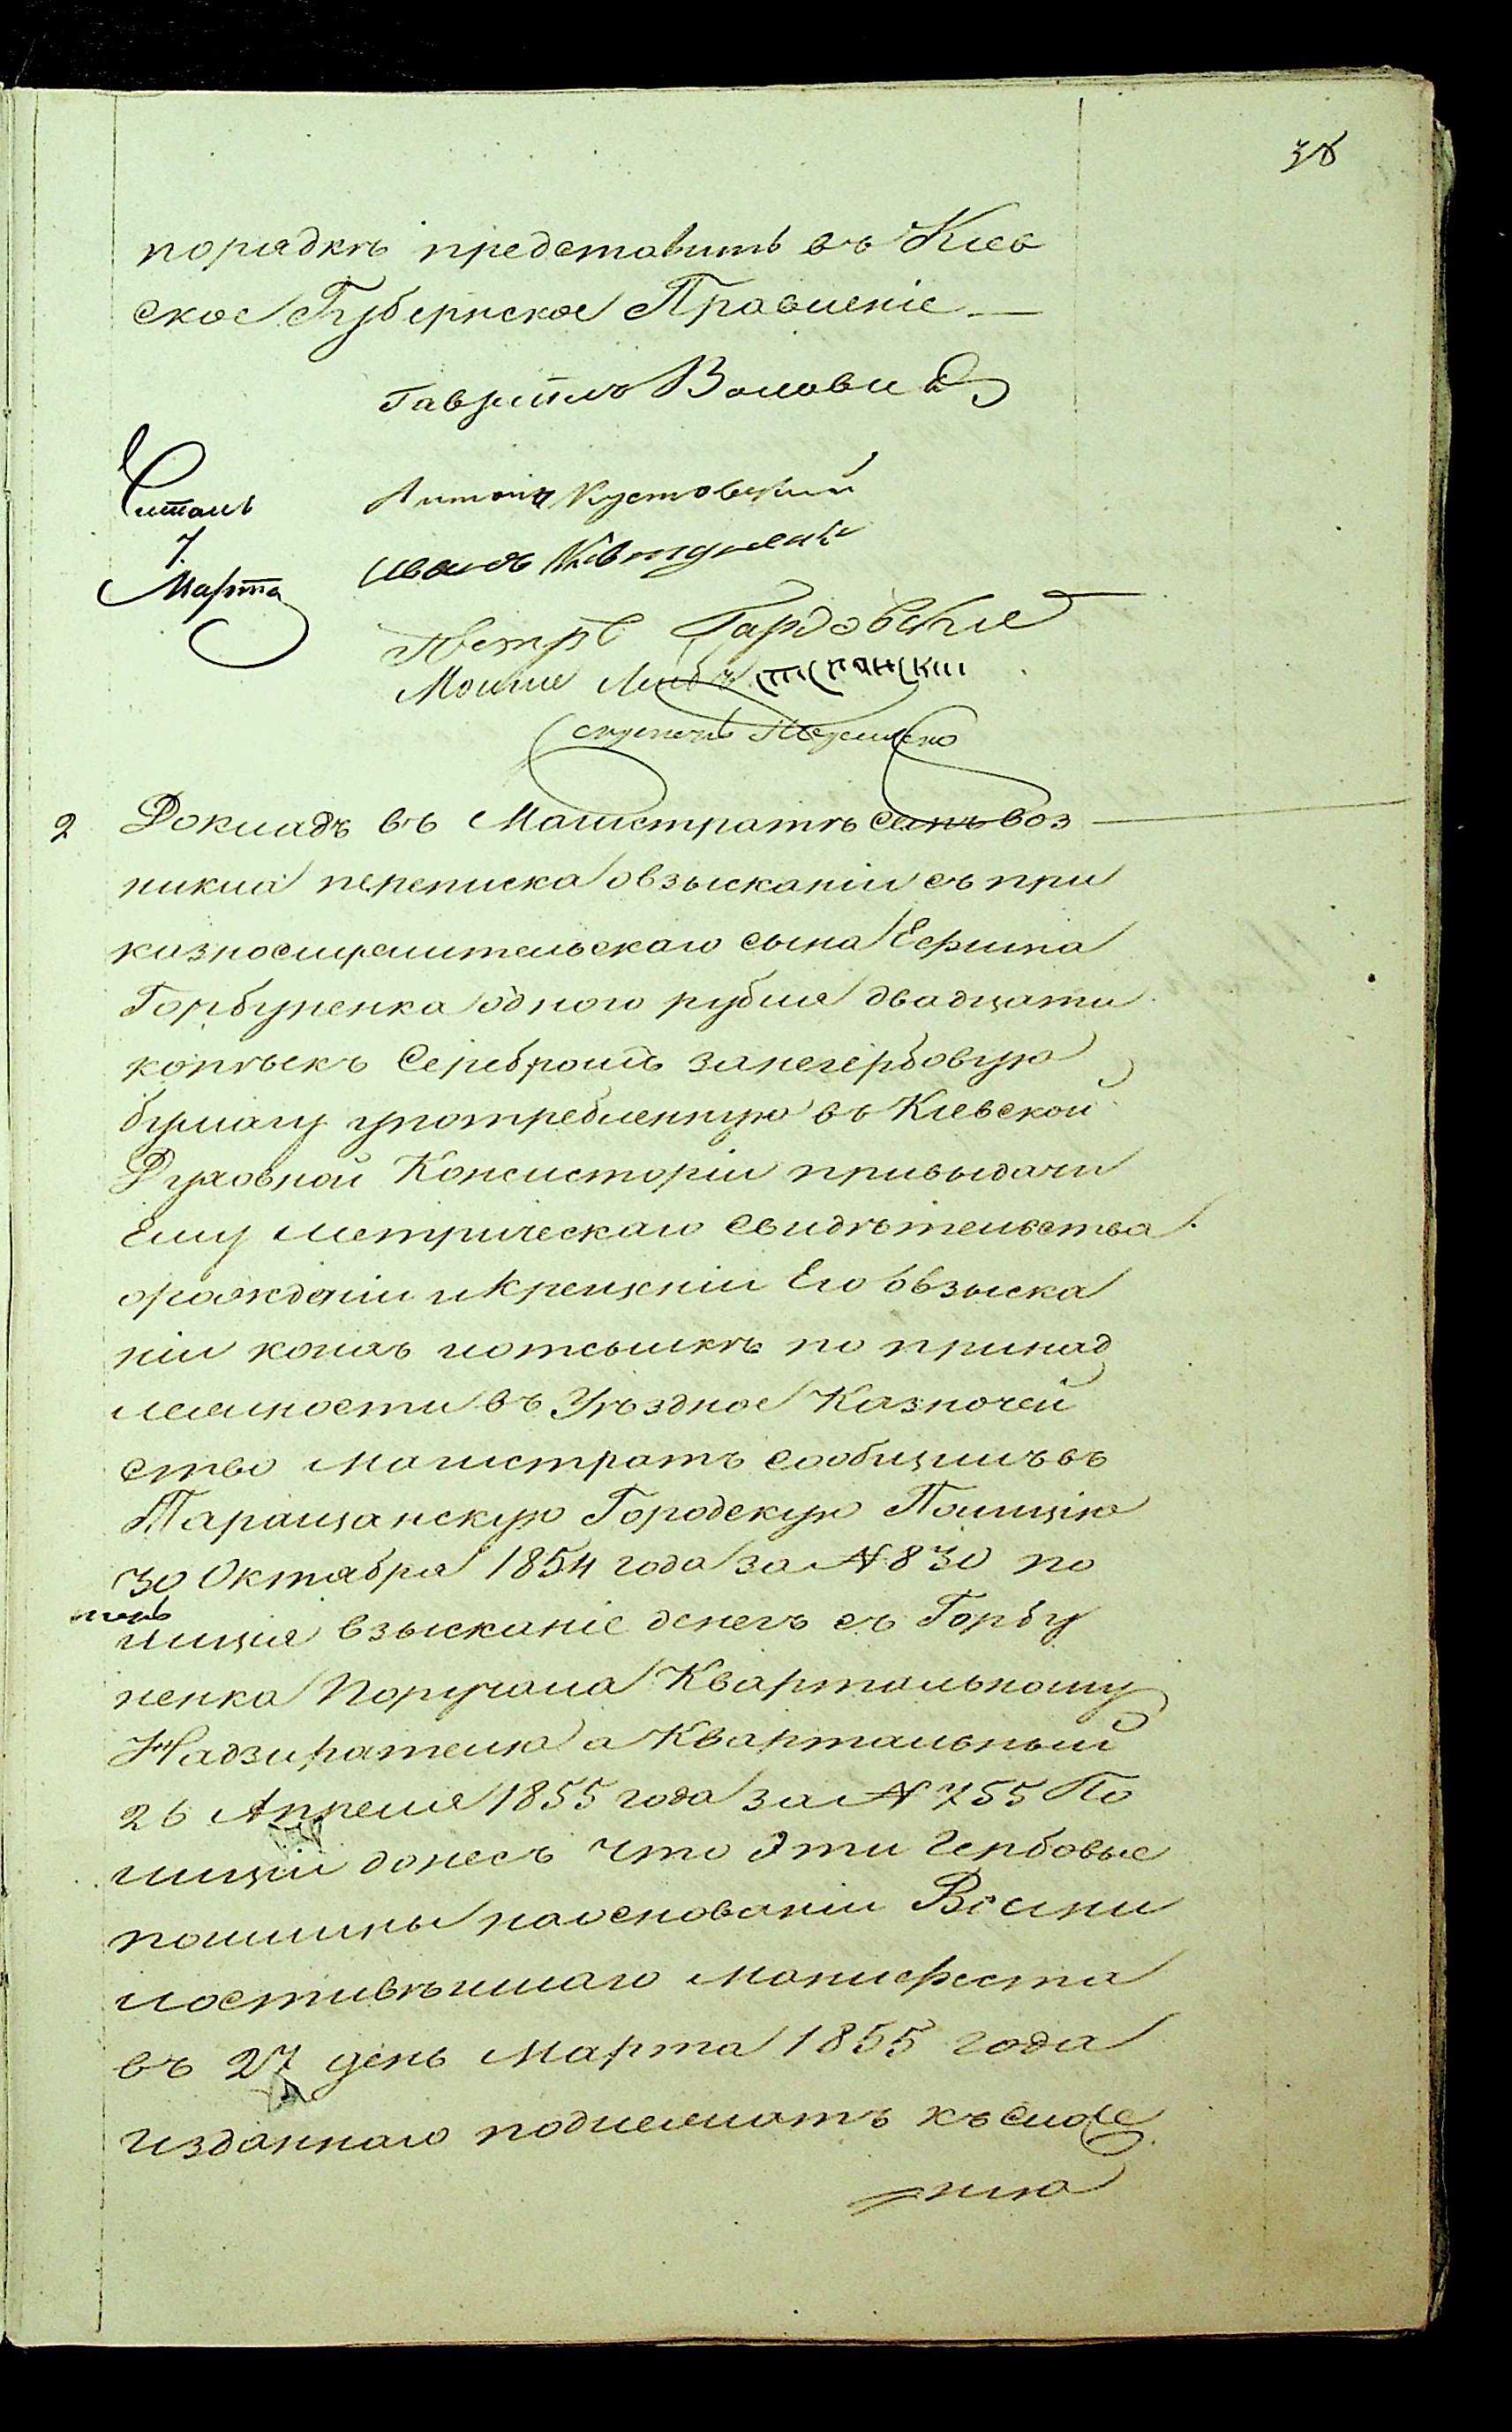 38
порядкѣ представить въ Кіев
ское Губернское Правленіе —
Гавріилъ
Читалъ
7.
Марта
Антонъ Кустовскій
Иванъ
Петръ Гардовскіе
Мошко Лейбъ
2 Докладъ въ Магистратѣ воз
никла переписка овзысканіи съ при
казнослужительскаго сына Ефима
Горбуненка одного рубля двадцати
копѣекъ Серебромъ занегербовую
бумагу употребленную въ Кіевской
Духовной Консисторіи привыдачи
Ему метрическаго Свидѣтельства
орожденіи икрещеніи Его овзыска
ніи коихъ иотсылкѣ по принад
лежности въ Уѣздное Казначей
ство магистратъ сообщилъ въ
Таращанскую Городскую Полицію
30 Октября 1854 года за № 830 по
лиція взысканіе денегъ съ Горбу
ненка Поручала Квартальному
Надзирателю а Квартальный
26 Апреля 1855 года за № 755 По
лиціи донесъ что эти Гербовые
пошлины наоснованіи Всеми
лостивѣйшаго манифеста
въ 27 день Марта 1855 года
изданнаго подлежатъ къ сложе
нію